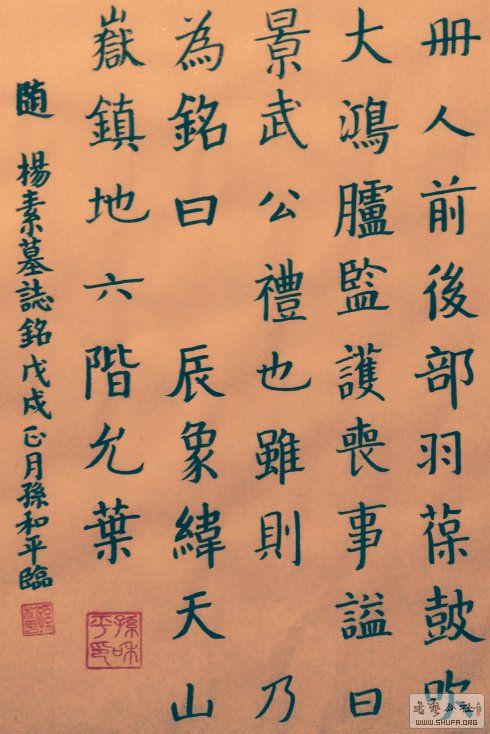 册人前後部羽葆鼓吹
大鴻臚監護喪事謚曰
景武公禮也雖則乃
為銘曰辰象緯天山
嶽鎮地六階允葉
隨 楊素墓誌銘戊戌正月孫和平臨
孫和平印
WWW.SHUFA.ORG